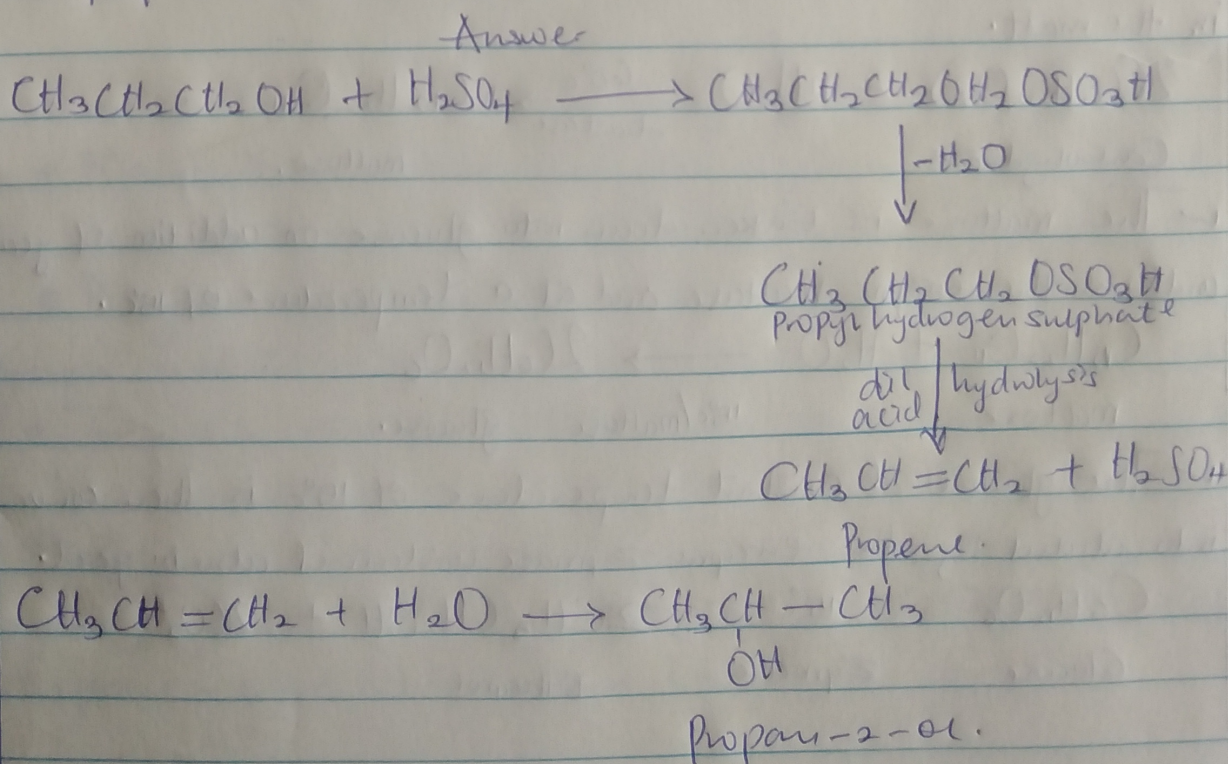 Answer
CH3CH2CH2OH + H2SO4 ⟶ CH3CH2CH2OH2OSO3H
-H2O
CH3CH2CH2OSO3H
Propyl hydrogen sulphate
dil hydrolysis
acid
CH3CH=CH2 + H2SO4
Propene.
CH3CH=CH2 + H2O ⟶ CH3CH-CH3
OH
Propan-2-ol.